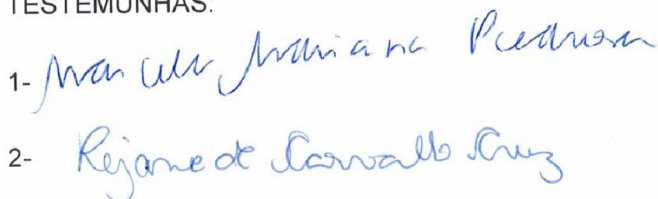 TESTEMUNHAS:
1- Marcela Adriana Pedrosa
2- Rejane de Carvalho Cruz